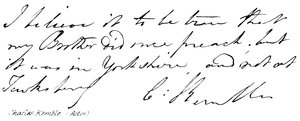 I believe it to be true that
my Brother did once preach, but
it was in Yorkshire, and not at
Tewksbury
C: Kemble
(Charles Kemble - Actor)